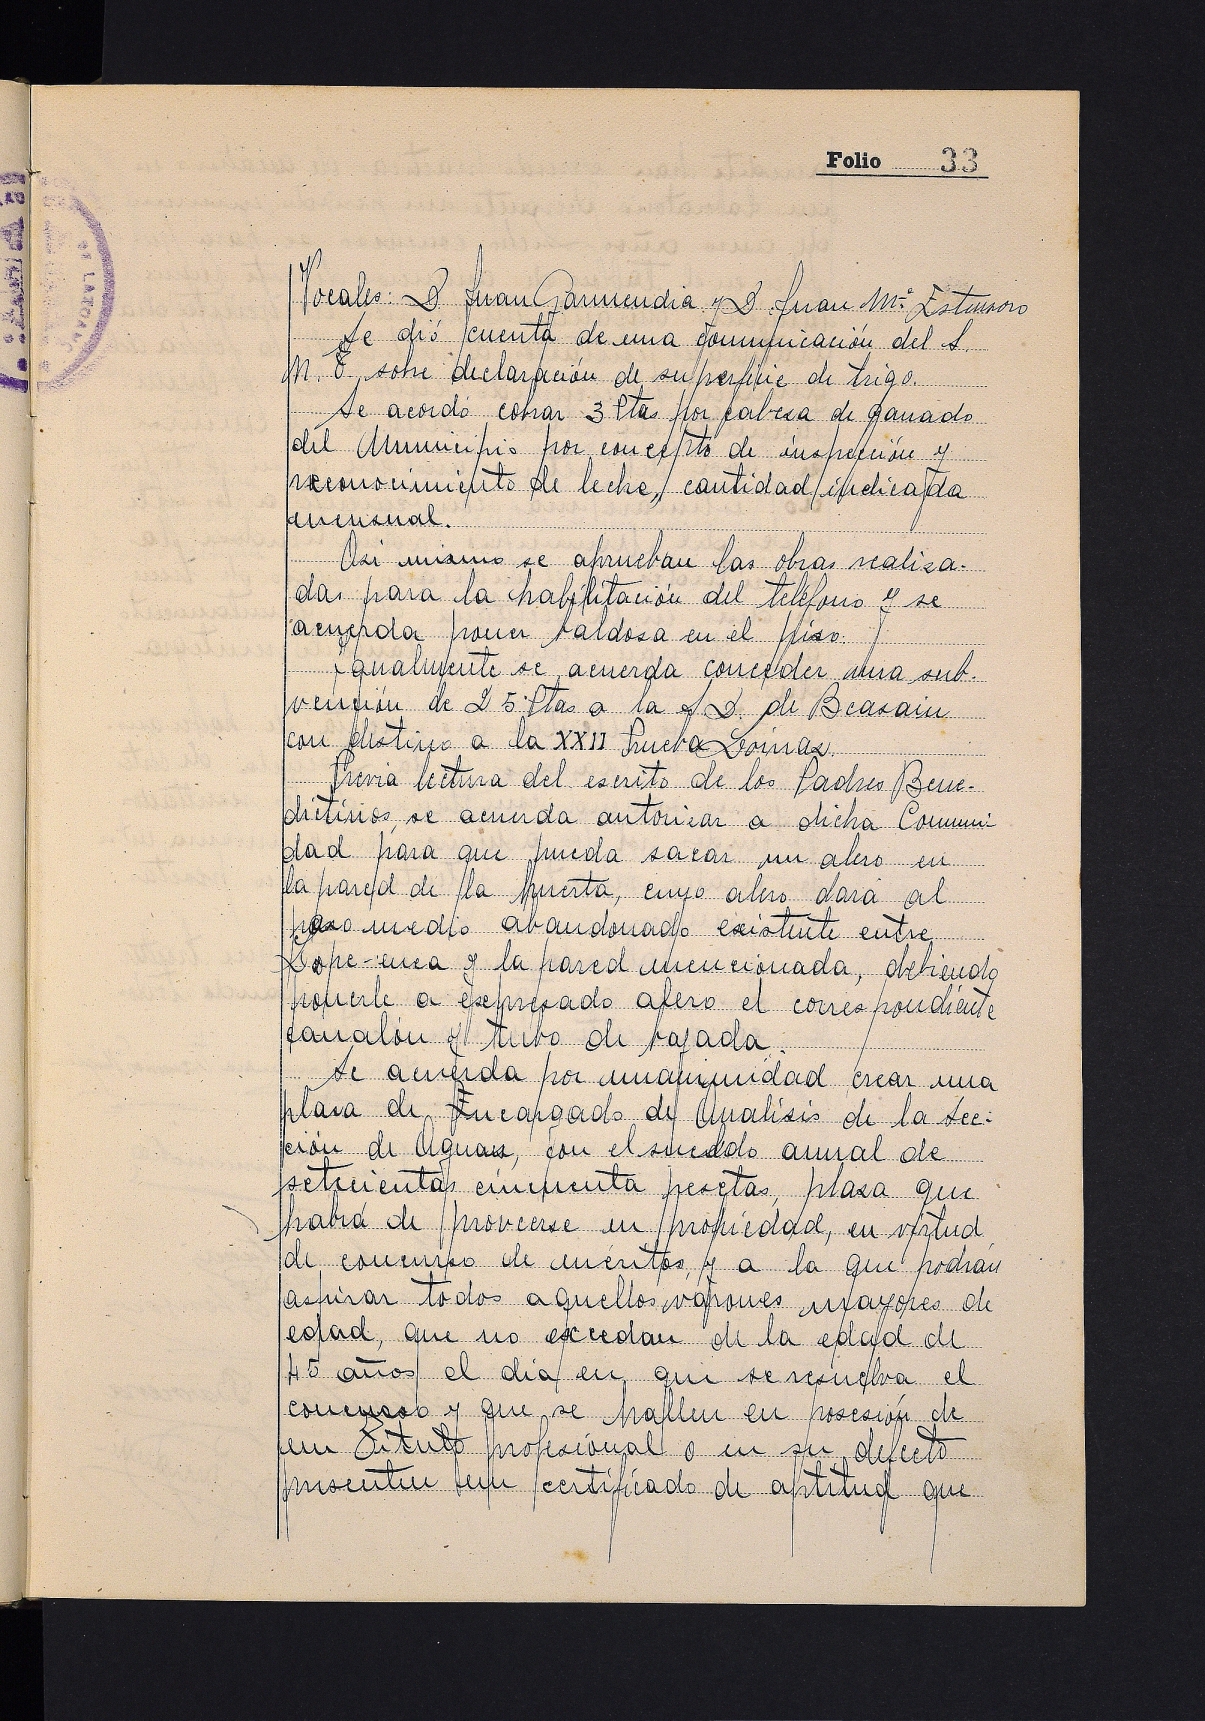 Folio 33
Vocales: D Juan Garmendia y D. Juan Mª Estensoro
Se dió cuenta de una comunicación del S.
M. T. sobre declaración de superficie de trigo.
Se acordó cobrar 3 Ptas por cabeza de ganado
del Municipio por concepto de inspección y
reconocimiento de leche, cantidad indicada
mensual.
Asi mismo se aprueban las obras realiza-
das para la habilitación del teléfono y se
acuerda poner baldosa en el piso.
Igualmente se acuerda conceder una sub-
vención de 25 Ptas a la S D. de Beasain
con destino a la XXII Prueba Loinaz.
Previa lectura del escrito de los Padres Bene-
dictinos, se acuerda autorizar a dicha Comuni-
dad para que pueda sacar un alero en
la pared de la huerta, cuyo alero dará al
paso medio abandonado existente entre
Lope-enea y la pared mencionada, debiendo
ponerle a expresado alero el correspondiente
canalón y tubo de bajada.
Se acuerda por unanimidad crear una
plaza de Encargado de Analisis de la Sec-
ción de Aguas, con el sueldo anual de
setecientas cincuenta pesetas, plaza que
habrá de proveerse en propiedad, en virtud
de concurso de méritos, y a la que podrán
aspirar todos aquellos varones mayores de
edad, que no excedan de la edad de
45 años el día en que se resuelva el
concurso y que se hallen en posesión de
un Titulo profesional o en su defecto
presenten un certificado de aptitud que